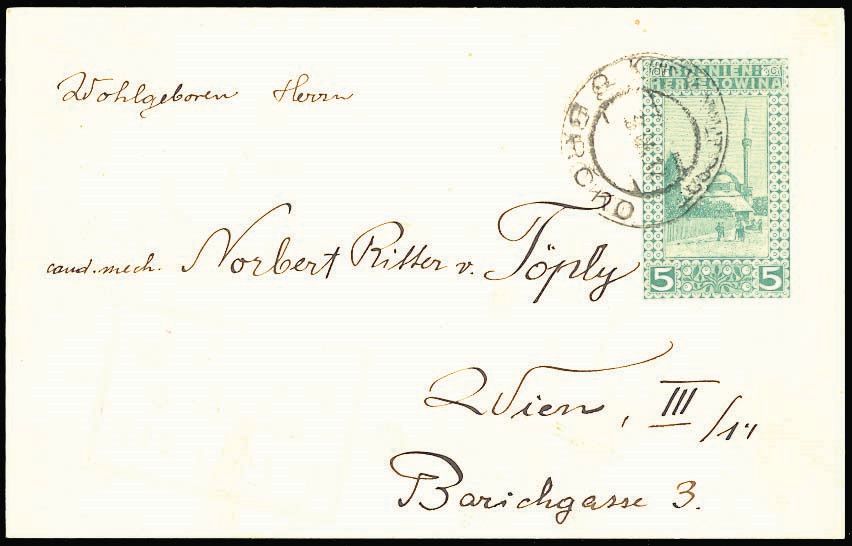 Wohlgeboren Herrn
cand. mech. Norbert Ritter v. Töply
Wien, III/
Barichgasse 3.
BOSNIEN-
HERCEGOWINA
5 5
BRČKO